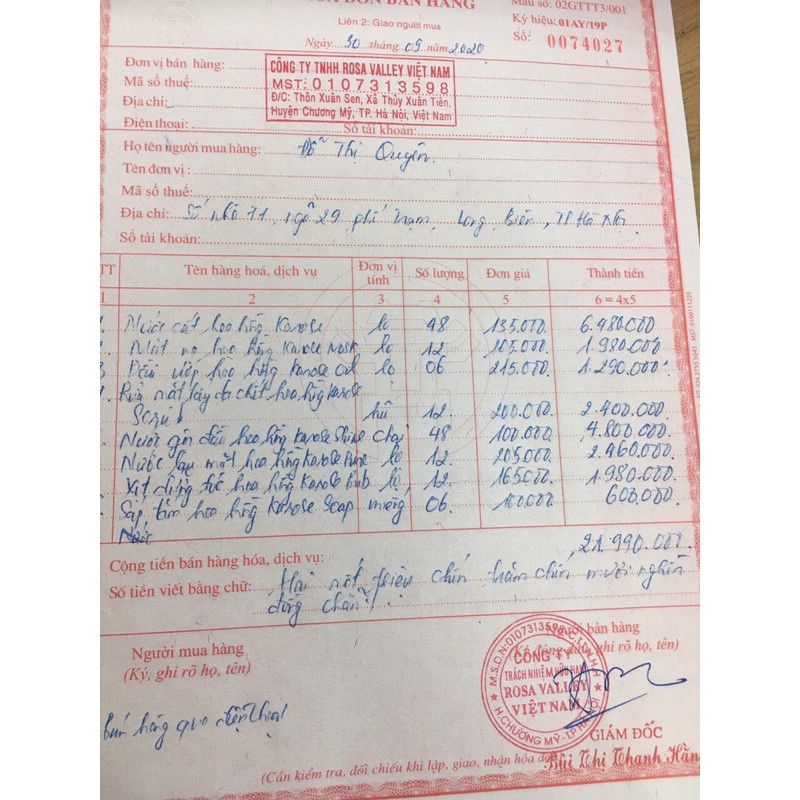 HÓA ĐƠN BÁN HÀNG
Mẫu số: 02GTTT3/001
Liên 2: Giao người mua
Ký hiệu: 01AY/19P
Ngày 30 tháng 09 năm 2020
Số: 0074027
Đơn vị bán hàng: CÔNG TY TNHH ROSA VALLEY VIỆT NAM
Mã số thuế: MST: 0107313598
Địa chỉ: Đ/C: Thôn Xuân Sen, Xã Thủy Xuân Tiên,
Huyện Chương Mỹ, TP. Hà Nội, Việt Nam
Điện thoại: Số tài khoản:
Họ tên người mua hàng: Đỗ Thị Quyên.
Tên đơn vị:
Mã số thuế:
Địa chỉ: Số nhà 71, ngõ 29 phố Trạm, Long Biên, TP Hà Nội
Số tài khoản:
TT Tên hàng hoá, dịch vụ Đơn vị tính Số lượng Đơn giá Thành tiền
1 2 3 4 5 6 = 4x5
Nước cất hoa hồng Karose lọ 48 135.000. 6.480.000
2 Mặt nạ hoa hồng Karose Mask lọ 12 165.000. 1.980.000
3 Dầu xốp hoa hồng Karose Oil lọ 06 215.000. 1.290.000
Rửa mặt tẩy da chết hoa hồng Karose
Scrub hũ 12. 200.000. 2.400.000.
Nước gội đầu hoa hồng Karose Shine chai 48 100.000. 4.800.000
Nước lau mặt hoa hồng Karose Pure lọ 12. 205.000. 2.460.000.
Xịt dưỡng tóc hoa hồng Karose lọ 12. 165.000. 1.980.000
Sáp tắm hoa hồng Karose Soap miếng 06. 100.000. 600.000.
Nước
Cộng tiền bán hàng hóa, dịch vụ: 21.990.000.
Số tiền viết bằng chữ: Hai mốt triệu chín trăm chín mươi nghìn
đồng chẵn
Người mua hàng
(Ký, ghi rõ họ, tên)
Người bán hàng
(Ký, đóng dấu, ghi rõ họ, tên)
M.S.D.N: 0107313598 - C.T.T.N.H.H
CÔNG TY
TRÁCH NHIỆM HỮU HẠN
ROSA VALLEY
VIỆT NAM
H.CHƯƠNG MỸ - T.P HÀ NỘI
Bán hàng qua điện thoại
GIÁM ĐỐC
Bùi Thị Thanh Hằn
(Cần kiểm tra, đối chiếu khi lập, giao, nhận hóa đơn)